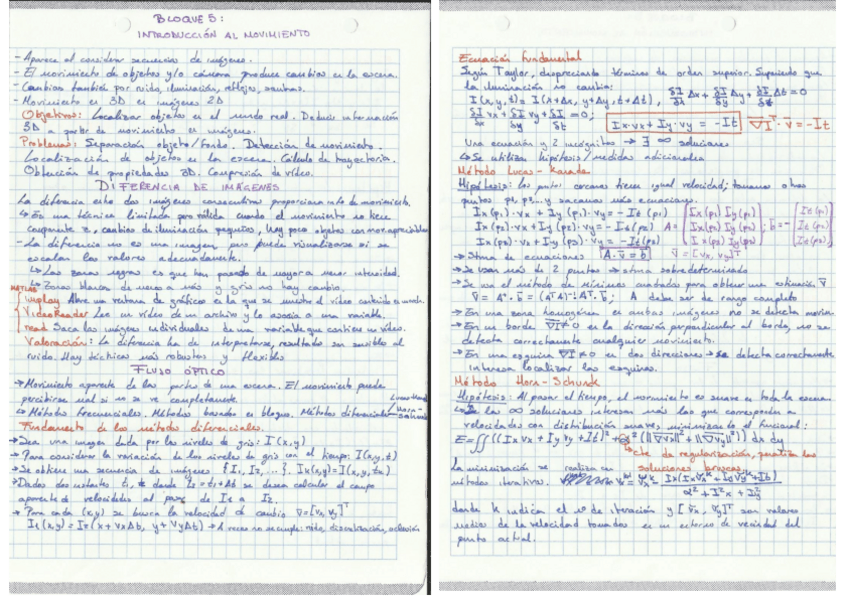 BLOQUE 5:
INTRODUCCIÓN AL MOVIMIENTO
- Aparece al considerar secuencias de imágenes.
- El movimiento de objetos y/o cámara produce cambios en la escena.
- Cambios también por ruido, iluminación, reflejos, sombras.
- Movimiento en 3D en imágenes 2D
Objetivos: Localizar objetos en el mundo real. Deducir información
3D a partir de movimiento en imágenes.
Problemas: Separación objeto/fondo. Detección de movimiento.
Localización de objetos en la escena. Cálculo de trayectoria.
Obtención de propiedades 3D. Compresión de vídeo.
DIFERENCIA DE IMÁGENES
La diferencia entre dos imágenes consecutivas proporciona info de movimiento.
↳ Es una técnica limitada pero válida cuando el movimiento no tiene
componente z, cambios de iluminación pequeños, hay pocos objetos con mov. apreciable
- La diferencia no es una imagen, pero puede visualizarse si se
escalan los valores adecuadamente.
↳ Las zonas negras es que han pasado de mayor a menor intensidad.
↳ Zonas blancas de menos a más y gris no hay cambio.
MATLAB
implay Abre una ventana de gráficos en la que se muestra el vídeo contenido en
VideoReader Lee un vídeo de un archivo y lo asocia a una variable.
read Saca las imágenes individuales de una variable que contiene un vídeo.
Valoración: La diferencia ha de interpretarse, resultado son sensible al
ruido. Hay técnicas más robustas y flexibles
FLUJO ÓPTICO
→ Movimiento aparente de los puntos de una escena. El movimiento puede
percibirse mal si no se ve completamente.
↳ Métodos frecuenciales. Métodos basados en bloques. Métodos diferenciales Horn-Schunck
Fundamento de los métodos diferenciales.
→ Sea una imagen dada por los niveles de gris: I(x,y)
→ Para considerar la variación de los niveles de gris con el tiempo: I(x,y,t)
→ Se obtiene una secuencia de imágenes {I1, I2, ...}. Ik(x,y)=I(x,y,tk)
→ Dados dos instantes t1, t2 donde t2=t1+Δt se desea calcular el campo
aparente de velocidades al pasar de I1 a I2.
→ Para cada (x,y) se busca la velocidad de cambio v̄=[vx vy]^T
I1(x,y)=I2(x+vxΔt, y+vyΔt) → A veces no se cumple: ruido, discretización, oclusión
Ecuación fundamental
Según Taylor, despreciando términos de orden superior. Suponiendo que
la iluminación no cambia:
I(x,y,t)=I(x+Δx, y+Δy, t+Δt), δI/δx Δx + δI/δy Δy + δI/δt Δt = 0
δI/δx vx + δI/δy vy + δI/δt = 0; Ix·vx + Iy·vy = -It ∇I^T·v̄ = -It
Una ecuación y 2 incógnitas → ∃ ∞ soluciones
↳ Se utilizan hipótesis/medidas adicionales
Método Lucas-Kanade
Hipótesis: los puntos cercanos tienen igual velocidad; tomamos otros
puntos p1, p2... y sacamos más ecuaciones.
Ix(p1)·vx + Iy(p1)·vy = -It(p1)
Ix(p2)·vx + Iy(p2)·vy = -It(p2) A = [Ix(p1) Iy(p1); Ix(p2) Iy(p2); Ix(p3) Iy(p3)]; b̄ = -[It(p1); It(p2); It(p3)]
Ix(p3)·vx + Iy(p3)·vy = -It(p3)
→ Stma de ecuaciones A·v̄ = b̄ v̄ = [vx, vy]^T
→ Se usan más de 2 puntos → stma sobredeterminado
→ Se usa el método de mínimos cuadrados para obtener una estimación v̄
v̄ = A⁺·b̄ = (A^T A)^-1 A^T·b̄; A debe ser de rango completo
→ En una zona homogénea en ambas imágenes no se detecta movim.
→ En un borde ∇I≠0 en la dirección perpendicular al borde, no se
detecta correctamente cualquier movimiento.
→ En una esquina ∇I≠0 en dos direcciones → se detecta correctamente
interesa localizar las esquinas.
Método Horn-Schunck
Hipótesis: Al pasar el tiempo, el movimiento es suave en toda la escena
↳ De las ∞ soluciones interesan más las que corresponden a
velocidades con distribución suave, minimizando el funcional:
E = ∬((Ix vx + Iy vy + It)² + α²(||∇vx||² + ||∇vy||²)) dx dy
↳ cte de regularización, penaliza las
soluciones bruscas.
La minimización se realiza con
métodos iterativos.
α² + I²x + I²y
donde k indica el nº de iteración y [v̄x, v̄y]^T son valores
medios de la velocidad tomados en un entorno de vecindad del
punto actual.